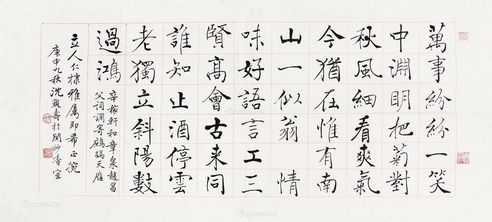 萬事紛紛一笑
中淵明把菊對
秋風細看爽氣
今猶在惟有南
山一似翁 情
味好語言工三
賢高會古来同
誰知止酒停雲
老獨立斜陽數
過鴻
辛稼軒和章泉趙昌
父詞調寄鷓鴣天應
立人仁棣雅屬即希正腕
庚申九秋沈 壽於